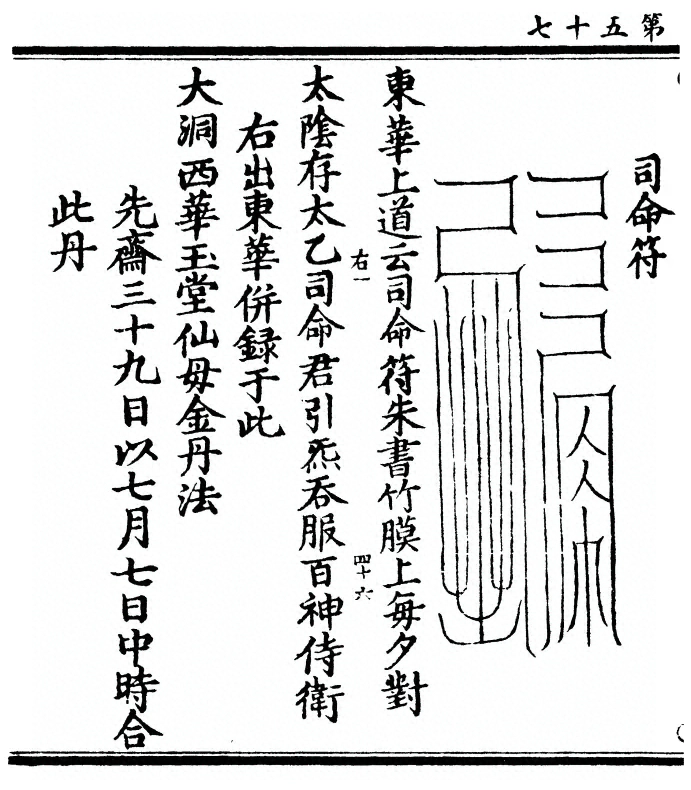 第五十七
司命符
東華上道云司命符朱書竹膜上每夕對
右一
四十六
太陰存太乙司命君引炁吞服百神侍衛
右出東華併録于此
大洞西華玉堂仙母金丹法
先齋三十九日以七月七日中時合
此丹